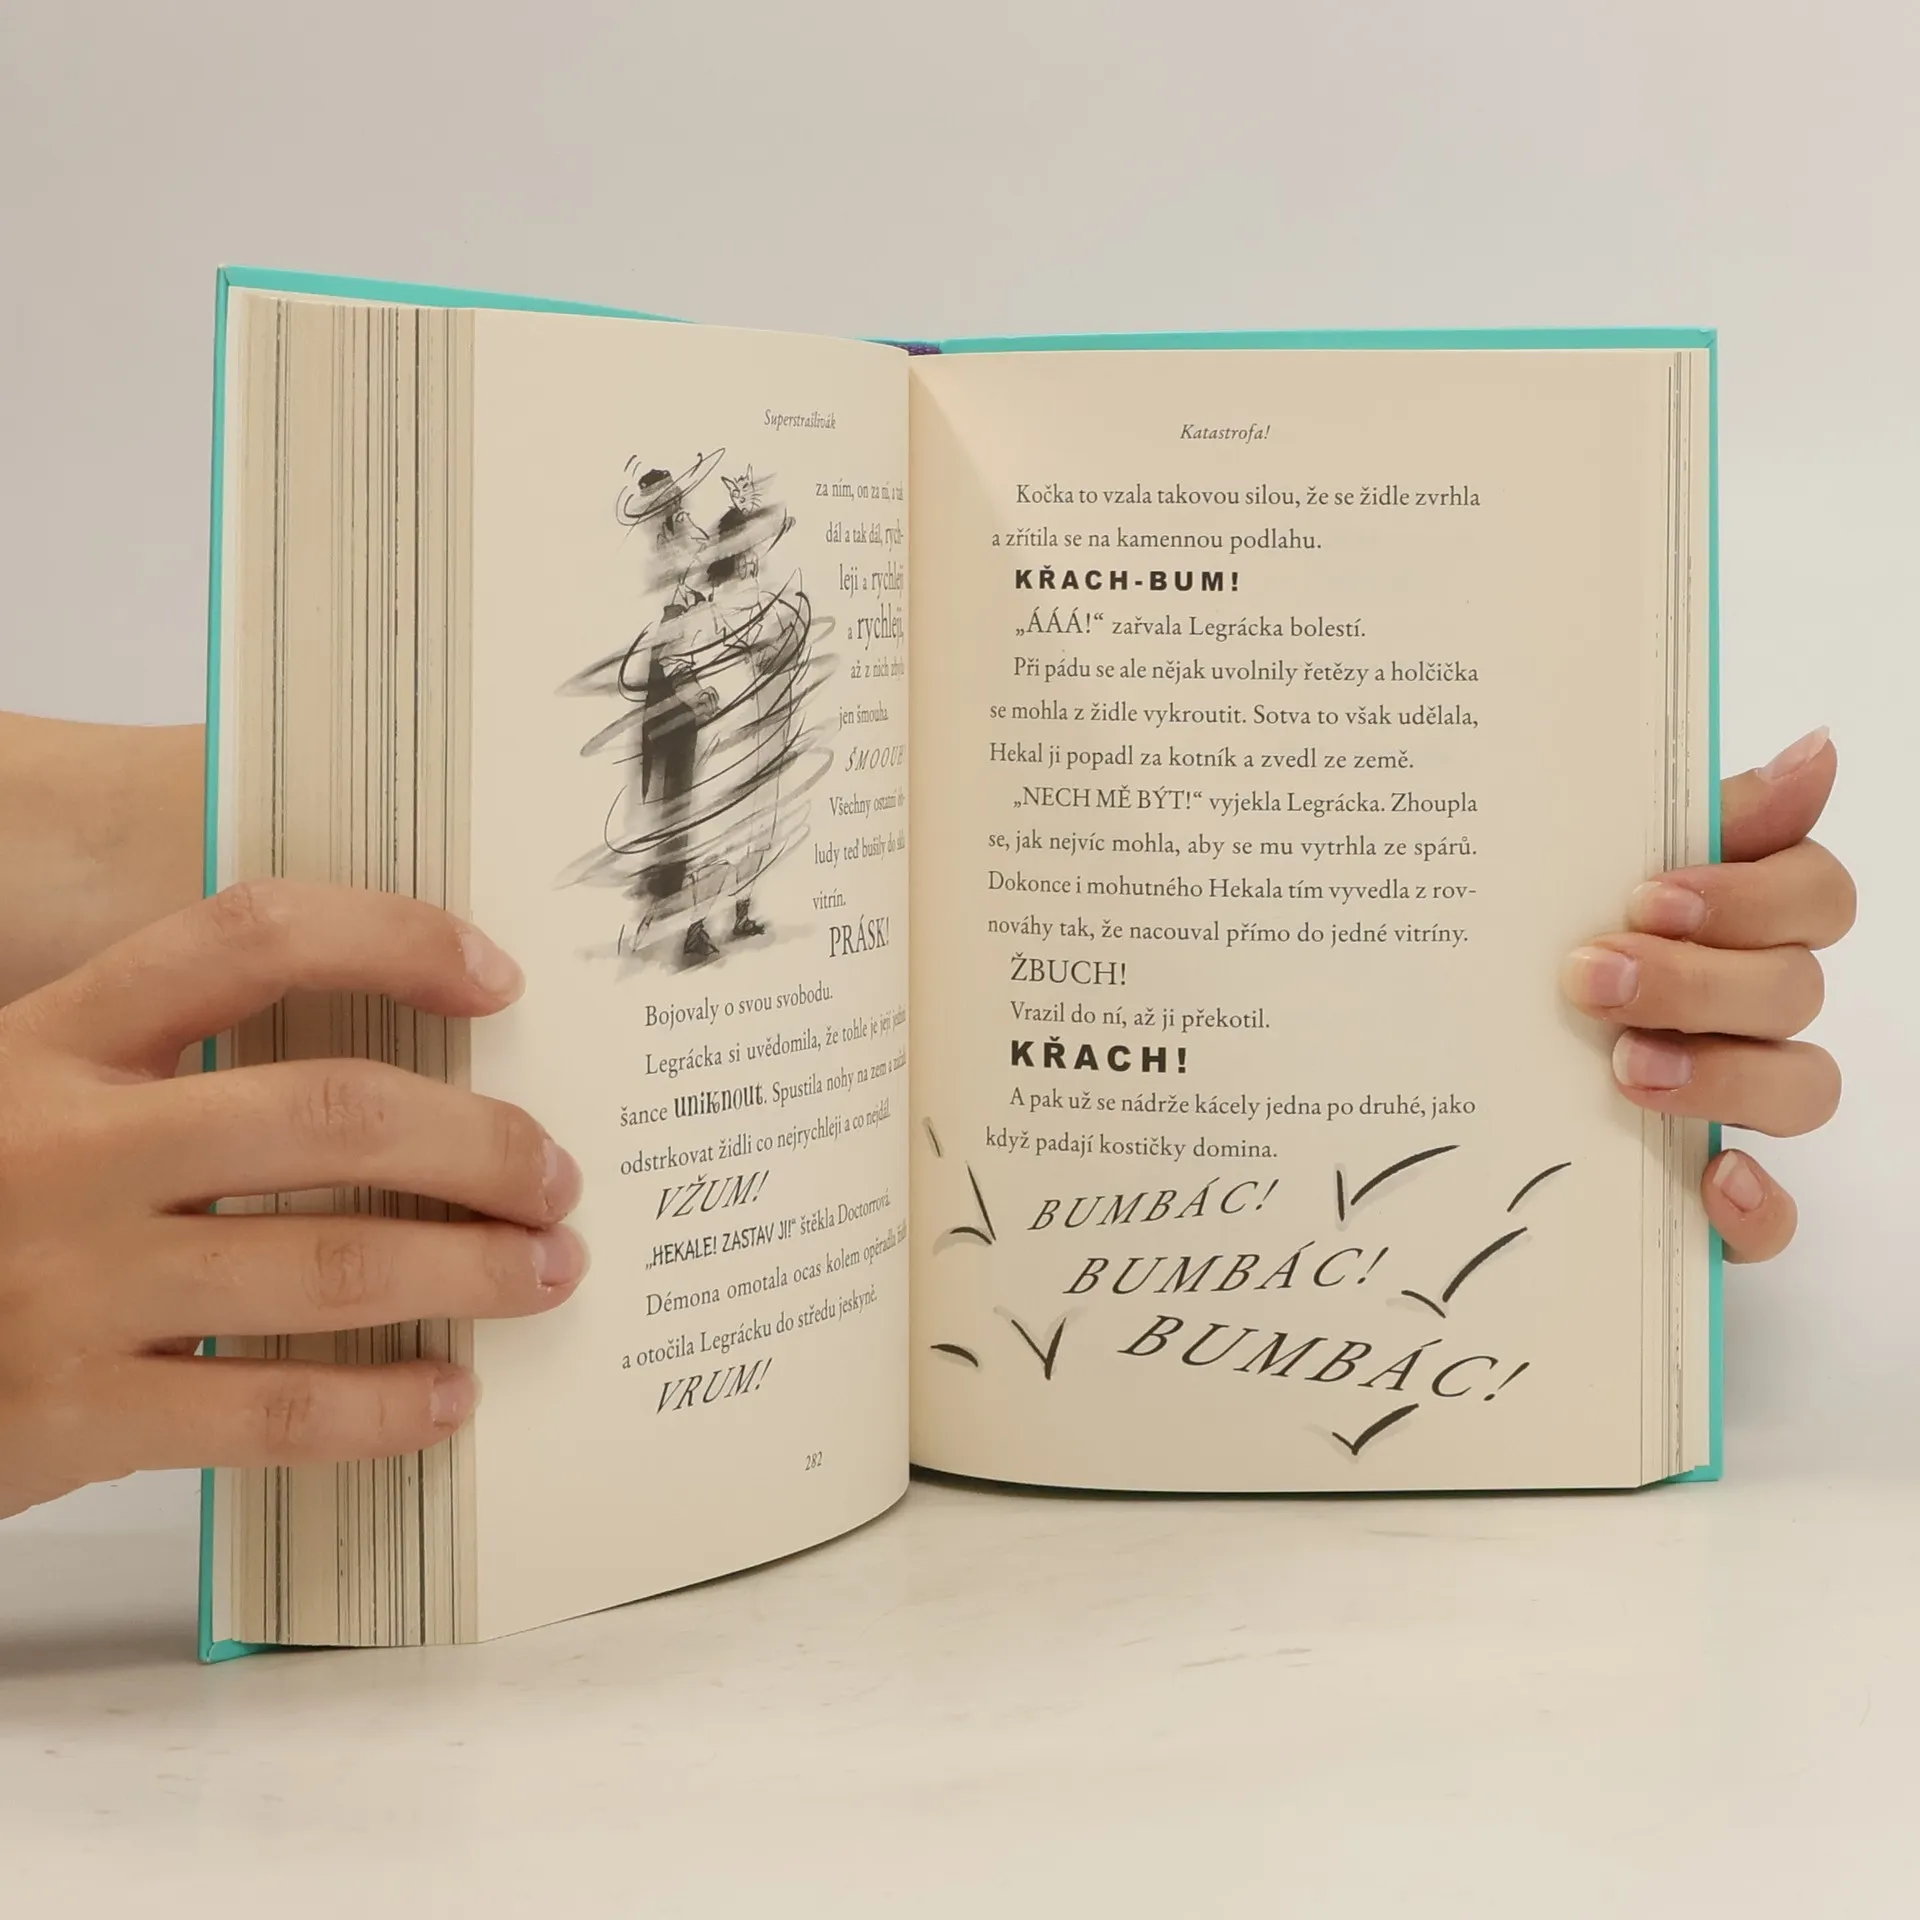 Superstrašlivák
za ním, on za ní, a tak
dál a tak dál, rych-
leji a rychleji
a rychleji,
až z nich zbyla
jen šmouha.
ŠMOOUH
Všechny ostatní
ludy teď bušily do skla
vitrín.
PRÁSK!
Bojovaly o svou svobodu.
Legrácka si uvědomila, že tohle je její
šance uniknout. Spustila nohy na zem a
odstrkovat židli co nejrychleji a co nejdál.
VŽUM!
„HEKALE! ZASTAV JI!“ štěkla Doctorrová.
Démona omotala ocas kolem opěradla židle
a otočila Legrácku do středu jeskyně.
VRUM!
282
Katastrofa!
Kočka to vzala takovou silou, že se židle zvrhla
a zřítila se na kamennou podlahu.
KŘACH-BUM!
„ÁÁÁ!“ zařvala Legrácka bolestí.
Při pádu se ale nějak uvolnily řetězy a holčička
se mohla z židle vykroutit. Sotva to však udělala,
Hekal ji popadl za kotník a zvedl ze země.
„NECH MĚ BÝT!“ vyjekla Legrácka. Zhoupla
se, jak nejvíc mohla, aby se mu vytrhla ze spárů.
Dokonce i mohutného Hekala tím vyvedla z rov-
nováhy tak, že nacouval přímo do jedné vitríny.
ŽBUCH!
Vrazil do ní, až ji překotil.
KŘACH!
A pak už se nádrže kácely jedna po druhé, jako
když padají kostičky domina.
BUMBÁC!
BUMBÁC!
BUMBÁC!